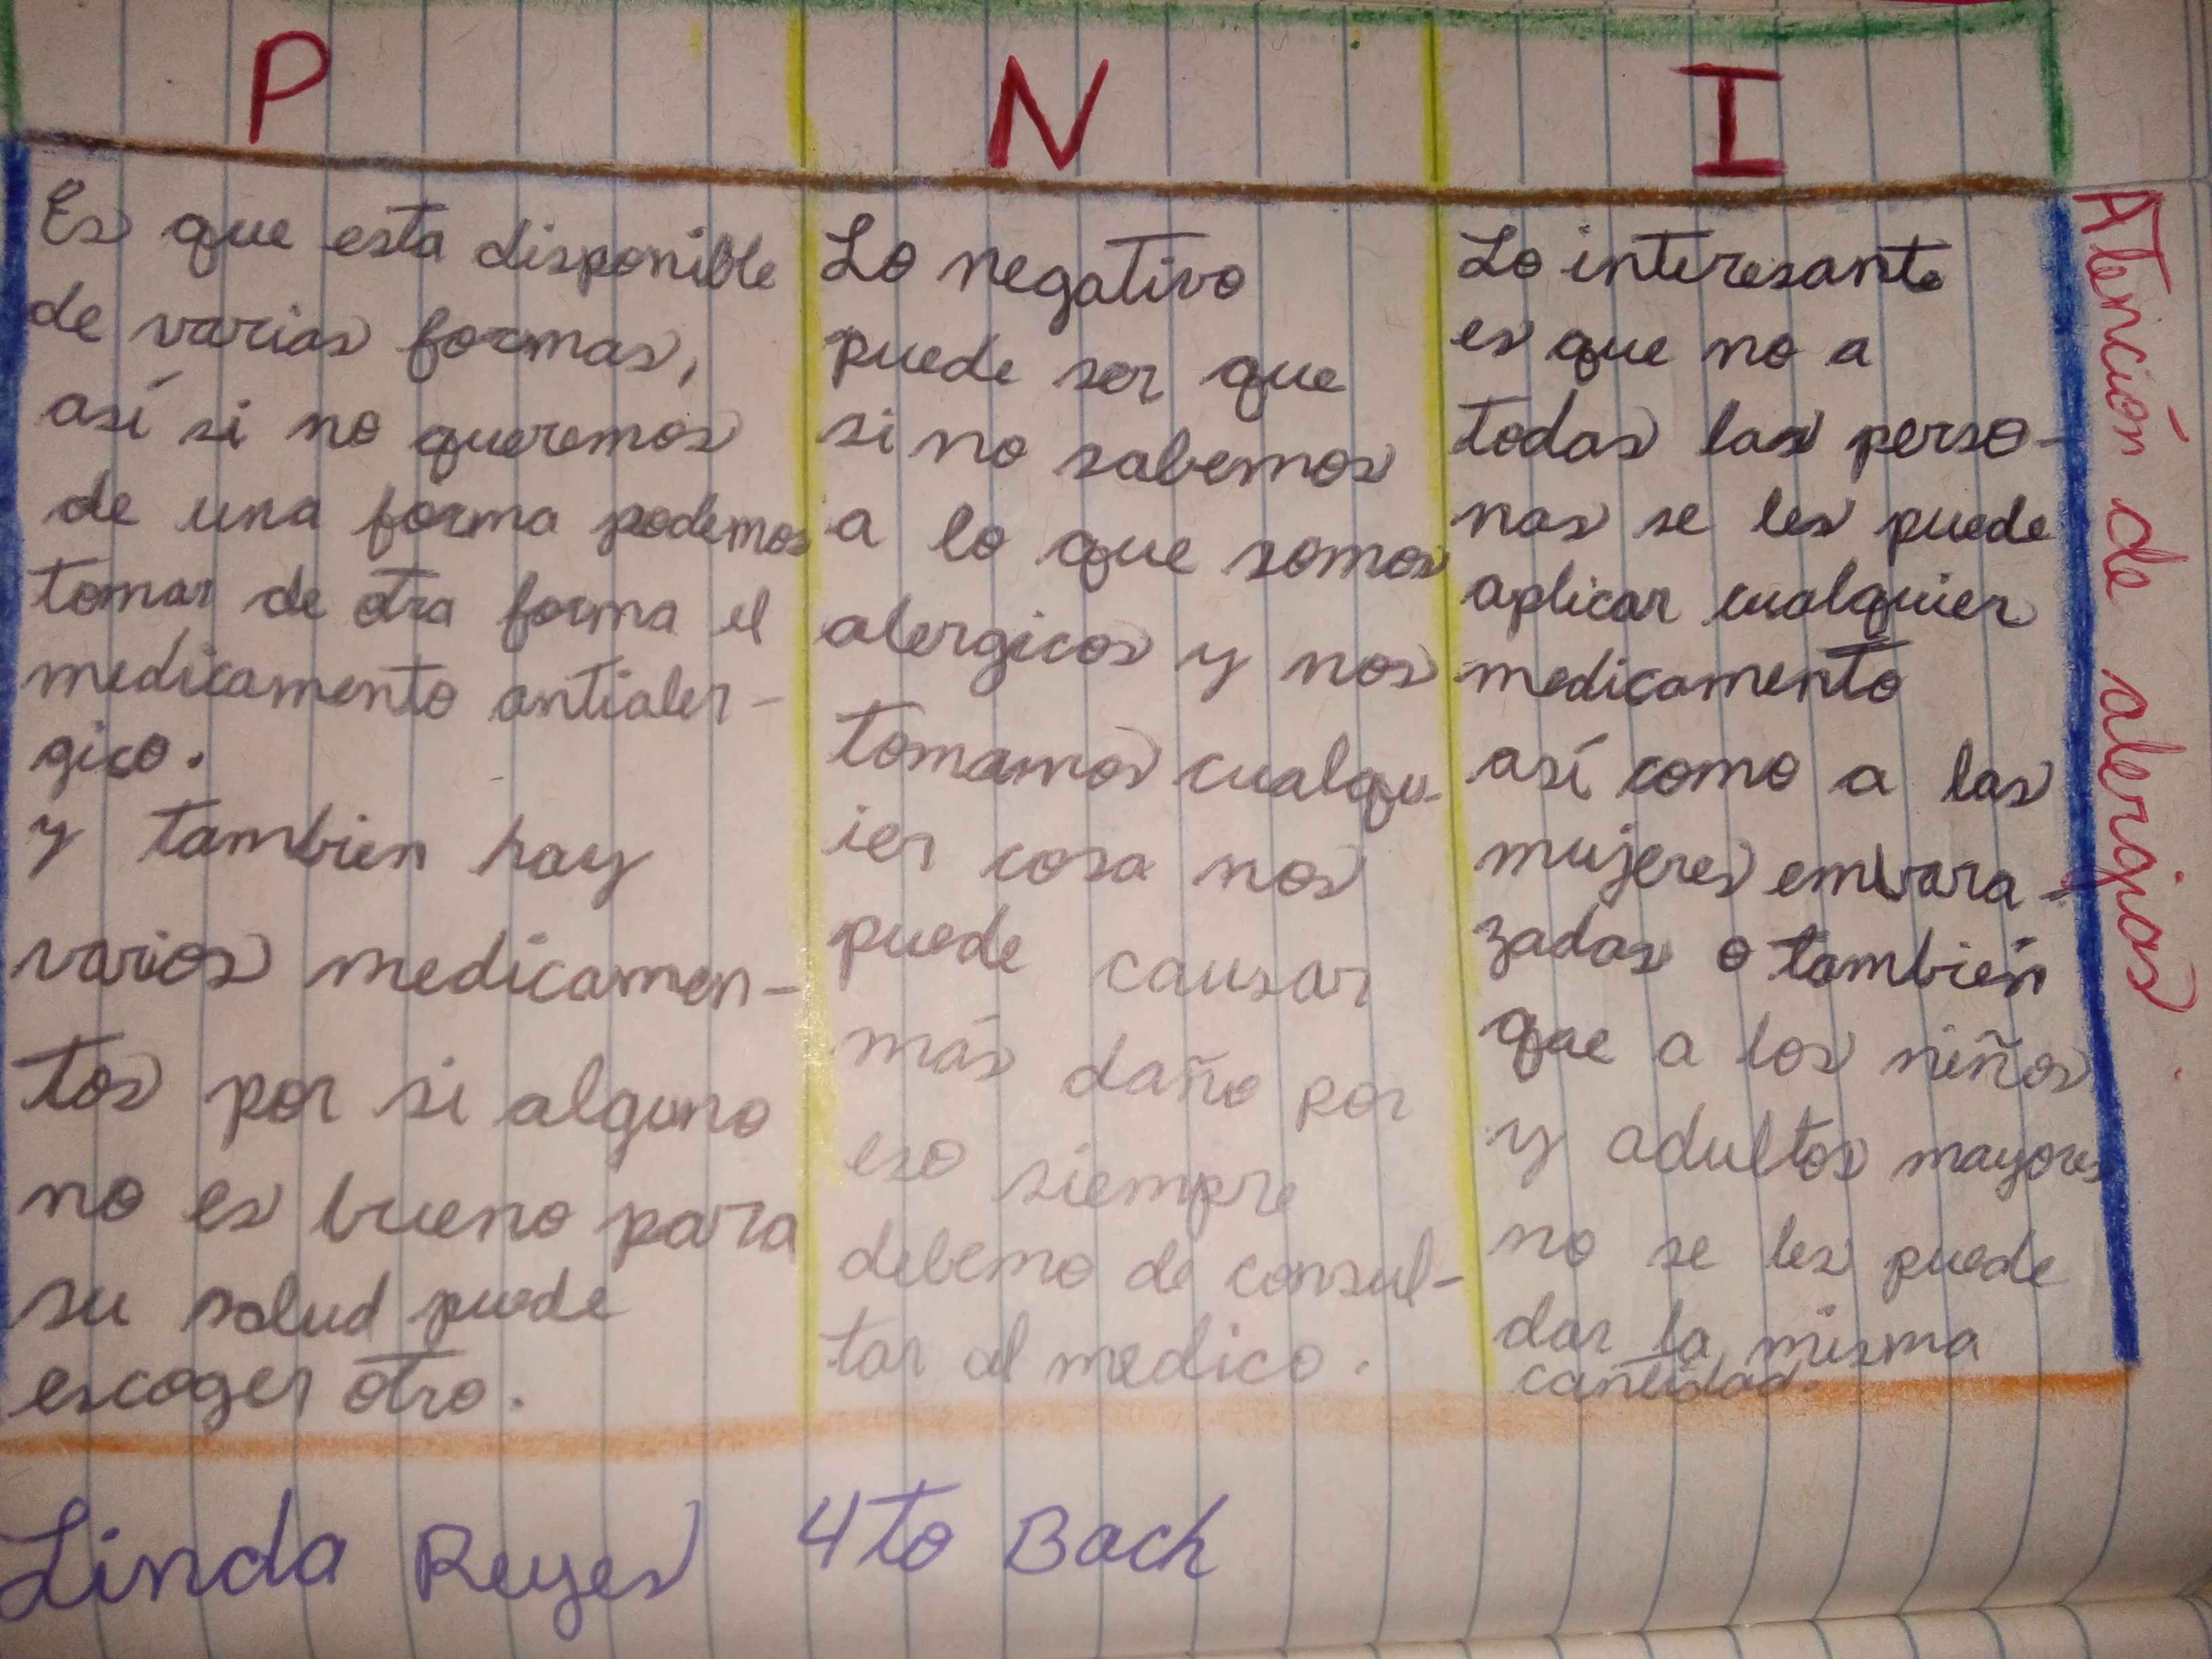 P
Es que esta disponible
de varias formas,
así si no queremos
de una forma podemos
tomar de otra forma el
medicamento antialer-
gico.
y tambien hay
varios medicamen-
tos por si alguno
no es bueno para
su salud puede
escoger otro.
N
Lo negativo
puede ser que
si no sabemos
a lo que somos
alergicos y nos
tomamos cualqu-
ier cosa nos
puede causar
más daño por
eso siempre
debemo de consul-
tar al medico.
I
Lo interesante
es que no a
todas las perso-
nas se les puede
aplicar cualquier
medicamento
así como a las
mujeres embara-
zadas o también
que a los niños
y adultos mayores
no se les puede
dar la misma
cantidad.
Atención de alergias
Linda Reyes 4to Bach